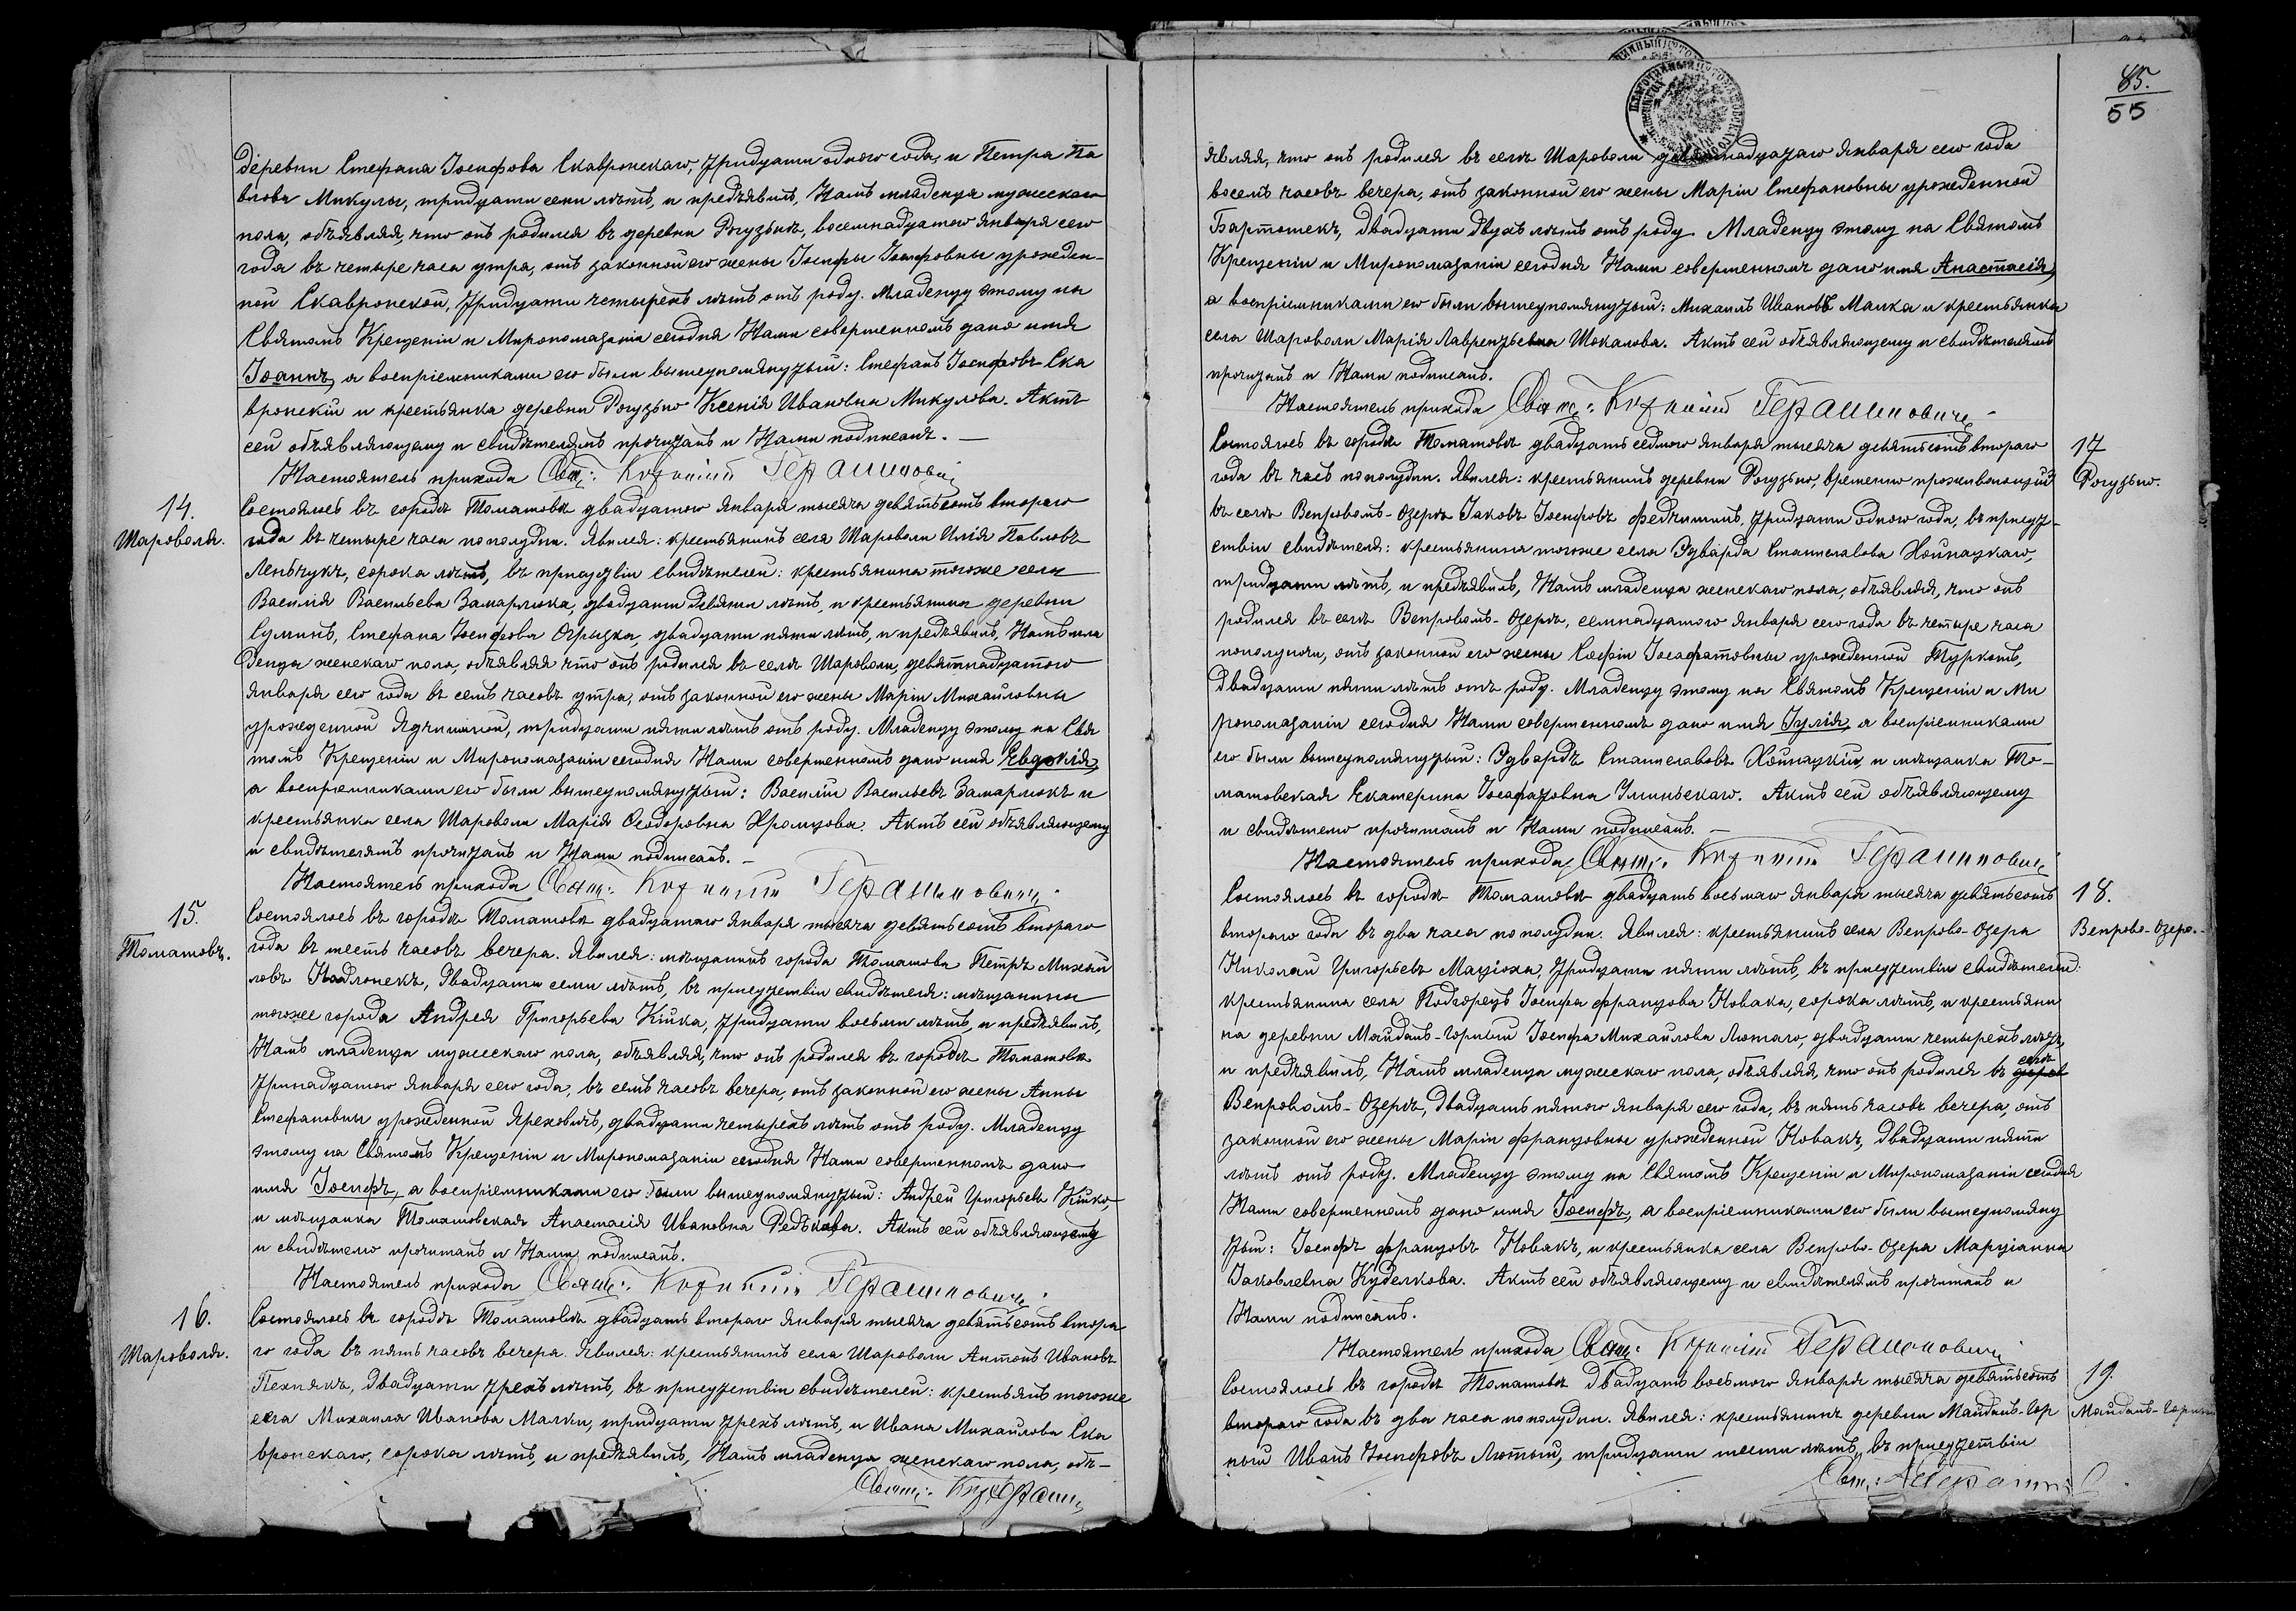 деревни Стефана Іосифова Скавронскаго, тридцати одного года, и Петра Па
влова Микулы, тридцати семи лѣтъ, и предъявилъ, Намъ младенца мужескаго
пола, объявляя, что онъ родился въ деревни Рогузьнѣ, восемнадцатого Января сего
года въ четыре часа утра, отъ законной его жены Іосифы Іосифовны урожден-
ной Скавронской, тридцати четырехъ лѣтъ отъ роду. Младенцу этому на
Святомъ Крещеніи и Миропомазаніи сегодня Нами совершенномъ дано имя
Іоаннъ, а воспріемниками его были вышеупомянутый: Стефанъ Іосифовъ Ска
вронскій и крестьянка деревни Рогузьно Ксенія Ивановна Микулова. Актъ
сей объявляющему и свидѣтелямъ прочитанъ и Нами подписанъ. —
Настоятель прихода Свящ:
14.
Шароволя.
Состоялось въ городѣ Томашовѣ двадцатого Января тысяча девятьсотъ второго
года въ четыре часа пополудни. Явился: крестьянинъ села Шароволи Илія Павловъ
Леньчукъ, сорока лѣтъ, въ присутвіи свидѣтелей: крестьянина тогоже села
Василія Васильева Замарлюка, двадцати девяти лѣтъ, и крестьянина деревни
Суминъ, Стефана Іосифова Огрызка, двадцати пяти лѣтъ, и предъявилъ, Намъ мла
денца женскаго пола, объявляя что онъ родился въ селѣ Шароволи, девятнадцатого
Января сего года въ семь часовъ утра, отъ законной его жены Маріи Михайловны
урожденной тридцати пяти лѣтъ отъ роду. Младенцу этому на Свя
томъ Крещеніи и Миропомазаніи сегодня Нами совершенномъ дано имя Евдокія,
а воспріемниками его были вышеупомянутый: Василій Васильевъ Замарлюкъ и
крестьянка села Шароволи Марія Ѳеодоровна Хромцова. Актъ сей объявляющему
и свидѣтелямъ прочитанъ и Нами подписанъ. —
Настоятель прихода Свящ: Герашиновичъ
15.
Томашовъ.
Состоялось въ городѣ Томашовѣ двадцатаго Января тысяча девятьсотъ второго
года въ шесть часовъ вечера. Явился: мѣщанинъ города Томашова Петръ Михай
ловъ двадцати семи лѣтъ, въ присутствіи свидѣтеля: мѣщанина
тогоже города Андрея Григорьева Кійка, тридцати восьми лѣтъ, и предъявилъ,
Намъ младенца мужескаго пола, объявляя, что онъ родился въ городѣ Томашовѣ
тринадцатого Января сего года, въ семь часовъ вечера, отъ законной его жены Анны
Стефановны урожденной Яреховичъ, двадцати четырехъ лѣтъ отъ роду. Младенцу
этому на Святомъ Крещеніи и Миропомазаніи сегодня Нами совершенномъ дано
имя Іосифъ, а воспріемниками его были вышеупомянутый: Андрей Григорьевъ Кійко,
и мѣщанка Томашовская Анастасія Ивановна Редькова. Актъ сей объявляющему
и свидѣтелю прочитанъ и Нами подписанъ.
Настоятель прихода Свящ: Герашиновичъ
16.
Шароволя.
Состоялось въ городѣ Томашовѣ двадцать второго Января тысяча девятьсотъ второ
го года въ пять часовъ вечера. Явился: крестьянинъ села Шароволи Антонъ Ивановъ
Пехнякъ, двадцати трехъ лѣтъ, въ присутствіи свидѣтелей: крестьянъ тогоже
села Михаила Иванова Малки, тридцати трехъ лѣтъ, и Ивана Михайлова Ска
вронскаго, сорока лѣтъ, и предъявилъ, Намъ младенца женскаго пола, объ-
Свящ:
85.
55
являя, что онъ родился въ селѣ Шароволи девятнадцатаго Января сего года
восемь часовъ вечера, отъ законной его жены Маріи Стефановны урожденной
Бартошекъ, двадцати двухъ лѣтъ отъ роду. Младенцу этому на Святомъ
Крещеніи и Миропомазаніи сегодня Нами совершенномъ дано имя Анастасія,
а воспріемниками его были вышеупомянутый: Михаилъ Ивановъ Малка и крестьянка
села Шароволи Марія Лаврентьевна Шокалова. Актъ сей объявляющему и свидѣтелямъ
прочитанъ и Нами подписанъ.
Настоятель прихода Свящ: Герашиновичъ
17
Рогузьно.
Состоялось въ городѣ Томашовѣ двадцать седмого Января тысяча девятьсотъ второго
года въ часъ пополудни. Явился: крестьянинъ деревни Рогузьно, временно проживающій
въ селѣ Вепровомъ-Озерѣ Іаковъ Іосифовъ Федчишинъ, тридцати одного года, въ присут-
ствіи свидѣтеля: крестьянина тогоже села Эдварда Станиславова Хойнацкаго,
тридцати лѣтъ, и предъявилъ, Намъ младенца женскаго пола, объявляя, что онъ
родился въ селѣ Вепровомъ-Озерѣ, семнадцатого Января сего года въ четыре часа
пополуночи, отъ законной его жены Софіи Іосафатовны урожденной Туркотъ,
двадцати пяти лѣтъ отъ роду. Младенцу этому на Святомъ Крещеніи и Ми
ропомазаніи сегодня Нами совершенномъ дано имя Іулія, а воспріемниками
его были вышеупомянутый: Эдвардъ Станиславовъ Хойнацкій, и мѣщанка То-
машовская Екатерина Іосафатовна Улиньскаго. Актъ сей объявляющему
и свидѣтелю прочитанъ и Нами подписанъ. —
Настоятель прихода Свящ: Герашиновичъ
18.
Вепрово-Озеро.
Состоялось въ городѣ Томашовѣ двадцать восьмаго Января тысяча девятьсотъ
второго года въ два часа пополудни. Явился: крестьянинъ села Вепрово-Озера
Николай Григорьевъ Маціоха, тридцати пяти лѣтъ, въ присутствіи свидѣтелей:
крестьянина села Подгорецъ Іосифа Францова Новака, сорока лѣтъ, и крестьяни
на деревни Майданъ-Горный Іосифа Михайлова Лютаго, двадцати четырехъ лѣтъ,
и предъявилъ, Намъ младенца мужескаго пола, объявляя, что онъ родился въ селѣ
Вепровомъ-Озерѣ, двадцать пятого Января сего года, въ пять часовъ вечера, отъ
законной его жены Маріи Францовны урожденной Новакъ, двадцати пяти
лѣтъ отъ роду. Младенцу этому на Святомъ Крещеніи и Миропомазаніи сегодня
Нами совершенномъ дано имя Іосифъ, а воспріемниками его были вышеупомяну
тый: Іосифъ Францовъ Новакъ, и крестьянка села Вепрово-Озера Марціанна
Іаковлевна Куделкова. Актъ сей объявляющему и свидѣтелямъ прочитанъ и
Нами подписанъ.
Настоятель прихода Свящ: Герашиновичъ
19.
Майданъ-Горный
Состоялось въ городѣ Томашовѣ двадцать восьмого Января тысяча девятьсотъ
второго года въ два часа пополудни. Явился: крестьянинъ деревни Майданъ-Гор
ный Иванъ Іосифовъ Лютый, тридцати шести лѣтъ, въ присутствіи
Свящ: